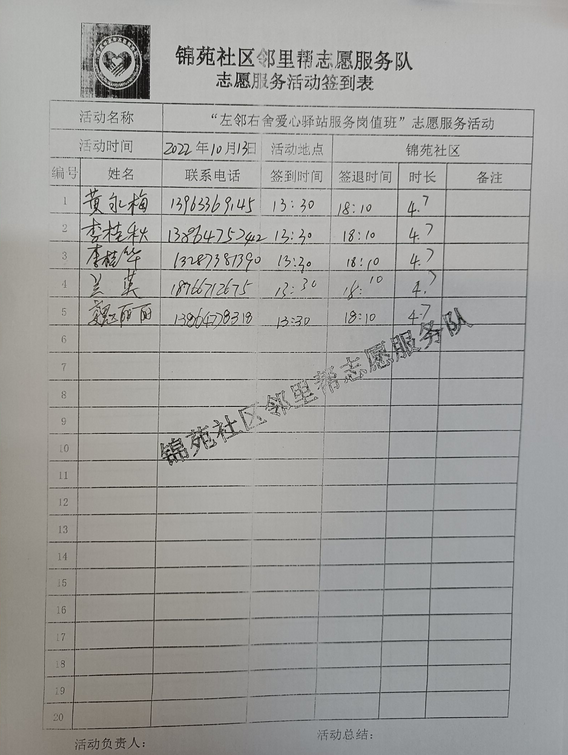 锦苑社区邻里帮志愿服务队
志愿服务活动签到表
活动名称 “左邻右舍爱心驿站服务岗值班”志愿服务活动
活动时间 2022年10月13日 活动地点 锦苑社区
编号 姓名 联系电话 签到时间 签退时间 时长 备注
1 黄永梅 13963369145 13:30 18:10 4.7
2 李桂秋 13:30 18:10 4.7
3 李桂华 13287381390 13:30 18:10 4.7
4 兰英 18766712675 13:30 18:10 4.7
5 魏丽丽 13864778318 13:30 18:10 4.7
6
7
8
9
锦苑社区邻里帮志愿服务队
10
11
12
13
14
15
16
17
18
19
20
活动负责人: 活动总结: